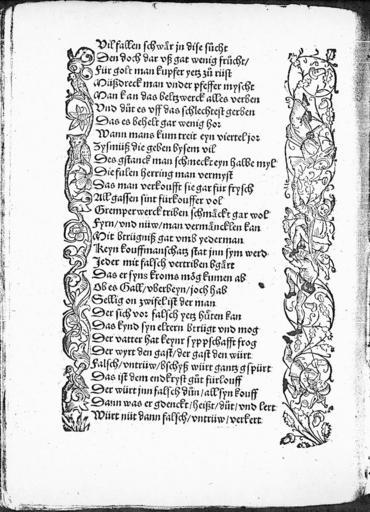 Vil fallen schwär jn dise sücht
Den doch dar vß gat wenig frücht/
Für golt man kupfer yetz zů rüst
Müßdreck man vnder pfeffer myscht
Man kan das beltzwerck alles verben
Vnd důt es vff das schlechtest gerben
Das es beheltt gar wenig hor
Wann mans kum treit eyn viertel jor
Zysmüß die geben bysem vil
Des gstanck man schmeckt eyn halbe myl
Die fulen herring man vermyst
Das man verkoufft sie gar für frysch
All gassen sint fürkouffer vol
Gremperwerck triben schmäckt gar wol
Fyrn/vnd nüw/man vermäncklen kan
Mit btrügniß gat vmb yederman
Keyn kouffmanschatz stat jnn sym werd
Jeder mit falsch vertriben bgärt
Das er syns kroms mög kumen ab
Ob es Gall/vberbeyn/joch hab
Sellig on zwifel ist der man
Der sich vor falsch yetz hüten kan
Das kynd syn eltern btrügt vnd mog
Der vatter hat keynr sypschafft frog
Der wyrt den gast/der gast den würt
Falsch/vntrüw/bschyß würt gantz gspürt
Das ist dem endkryst gůt fürlouff
Der würt jnn falsch důn/all syn kouff
Dann was er gdenckt/heißt/důt/vnd lert
Würt nüt dann falsch/vntrüw/verkert